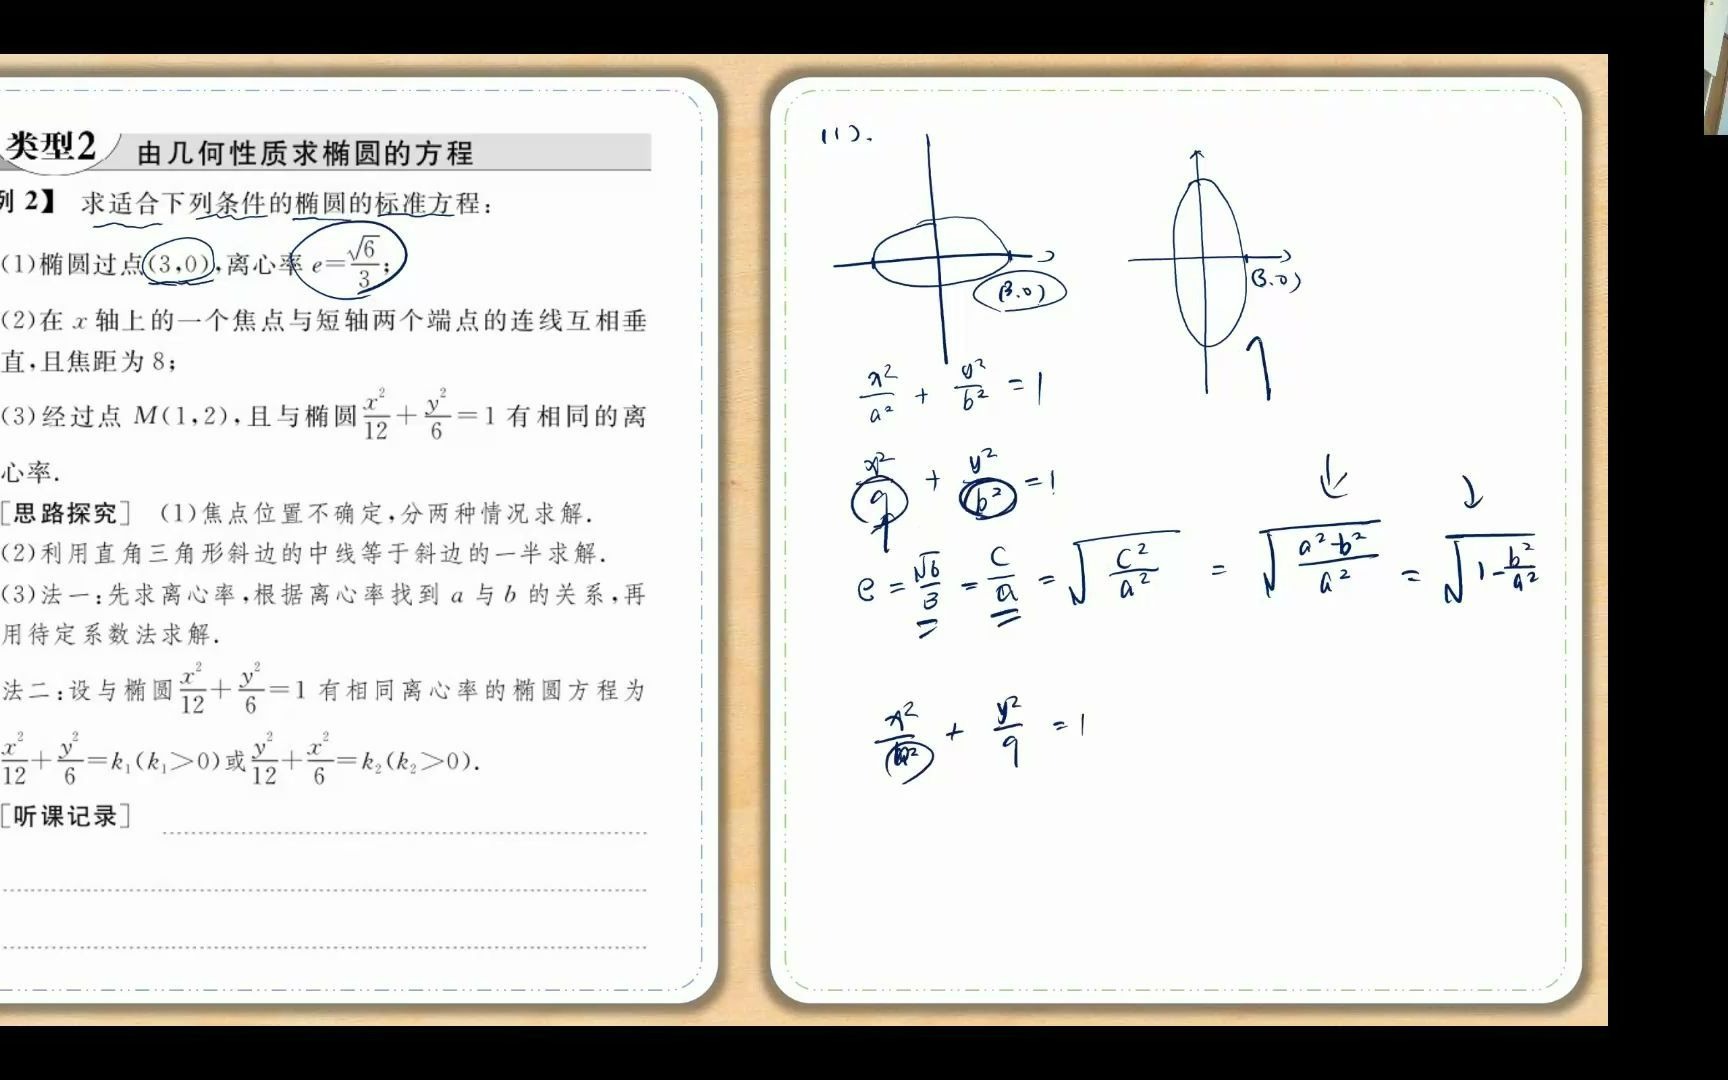 类型2 由几何性质求椭圆的方程
例 2】 求适合下列条件的椭圆的标准方程:
(1)椭圆过点(3,0),离心率 e=√6/3;
(2)在 x 轴上的一个焦点与短轴两个端点的连线互相垂
直,且焦距为 8;
(3)经过点 M(1,2),且与椭圆x²/12+y²/6=1 有相同的离
心率.
[思路探究] (1)焦点位置不确定,分两种情况求解.
(2)利用直角三角形斜边的中线等于斜边的一半求解.
(3)法一:先求离心率,根据离心率找到 a 与 b 的关系,再
用待定系数法求解.
法二:设与椭圆x²/12+y²/6=1 有相同离心率的椭圆方程为
x²/12+y²/6=k₁(k₁>0)或y²/12+x²/6=k₂(k₂>0).
[听课记录]
(1).
(3.0)
(3.0)
x²/a² + y²/b² = 1
x²/9 + y²/b² = 1
e = √6/3 = c/a = √(c²/a²) = √((a²-b²)/a²) = √(1-b²/a²)
x²/b² + y²/9 = 1